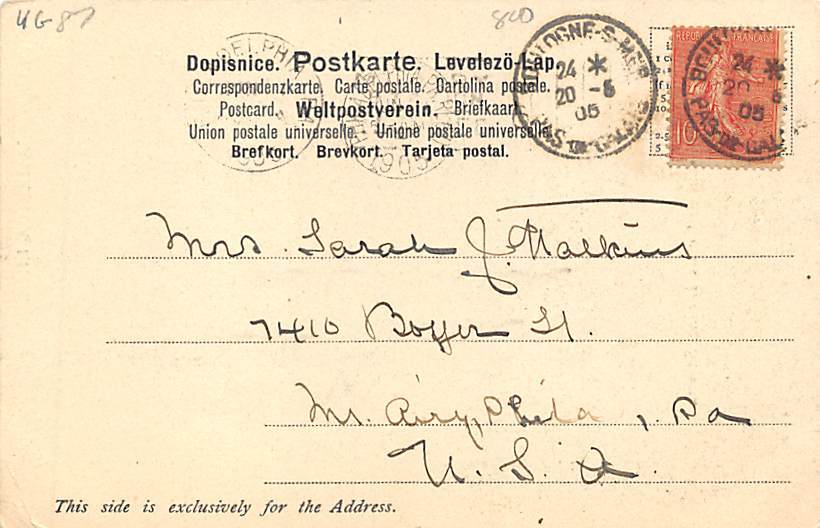 UG-87
800
Dopisnice. Postkarte. Levelező-Lap.
Correspondenzkarte. Carte postale. Cartolina postale.
Postcard. Weltpostverein. Briefkaart.
Union postale universelle. Unione postale universelle.
Brefkort. Brevkort. Tarjeta postal.
BOULOGNE-S-MER
24 *
20 -5
05
PAS-DE-CALAIS
REPUBLIQUE FRANÇAISE
10
24 *
20 5
05
PAS-DE-CALAIS
1905
Mrs. Sarah J. Walkins
7410 Boyer St.
Mt. Airy, Phila, Pa
U. S. A.
This side is exclusively for the Address.